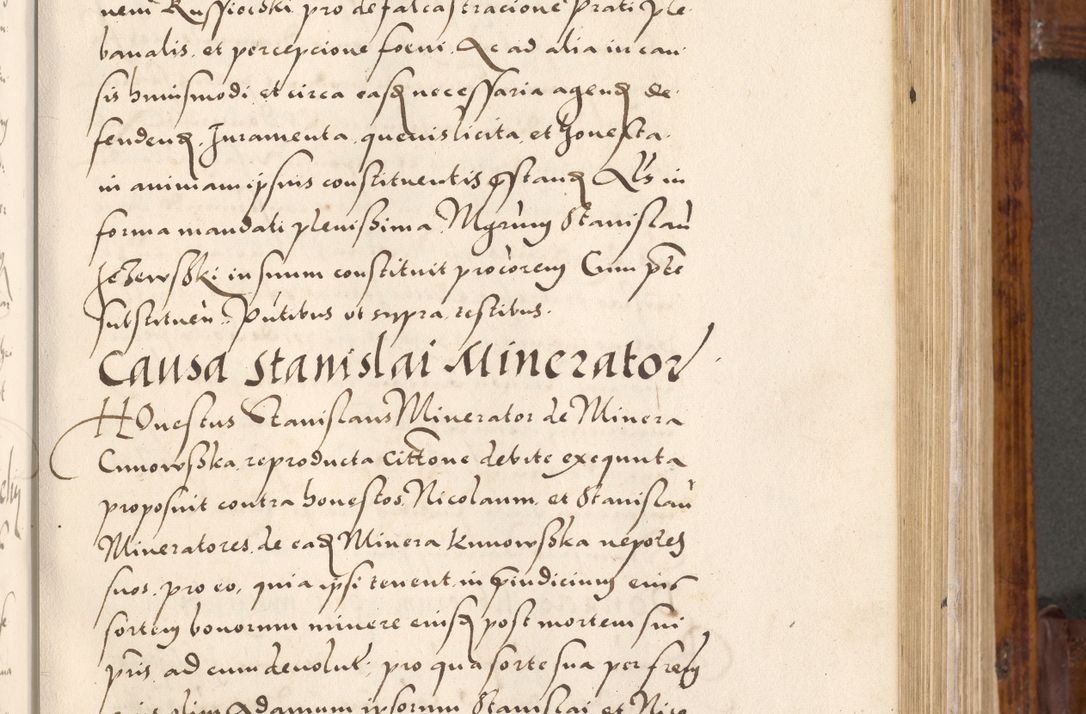 nem Russioczki pro defalcastracione prati ple-
banalis. et percepcione foeni. Ac ad alia in cau-
sis hmōismodi et circa easdꝫ necessaria agendꝫ de-
fendendꝫ. Juramenta quevis licita et honesta.
in animam ipsius constituentis pstandꝫ Als in
forma mandati plenissima. Mgrum Stanislau
Jezewsski in suum constituit procorem Cum pte
substituen. Pntibus ut supra testibus.
Causa Stanislai Minerator
HOnestus Stanislaus Minerator de Minera
Cunowsska, reproducta Cittone debite exequuta
proposuit contra honestos Nicolaum et Stanislau
Mineratores de eadꝫ Minera Kunowsska nepotes
suos, pro eo, quia ipsi tenent in piudicium eius
sortem bonorum minere eiusdꝫ post mortem sui
pris ad eum devolut. pro qua sorte sua per frem
olim Adamum ipsorum Stanislai et Nico